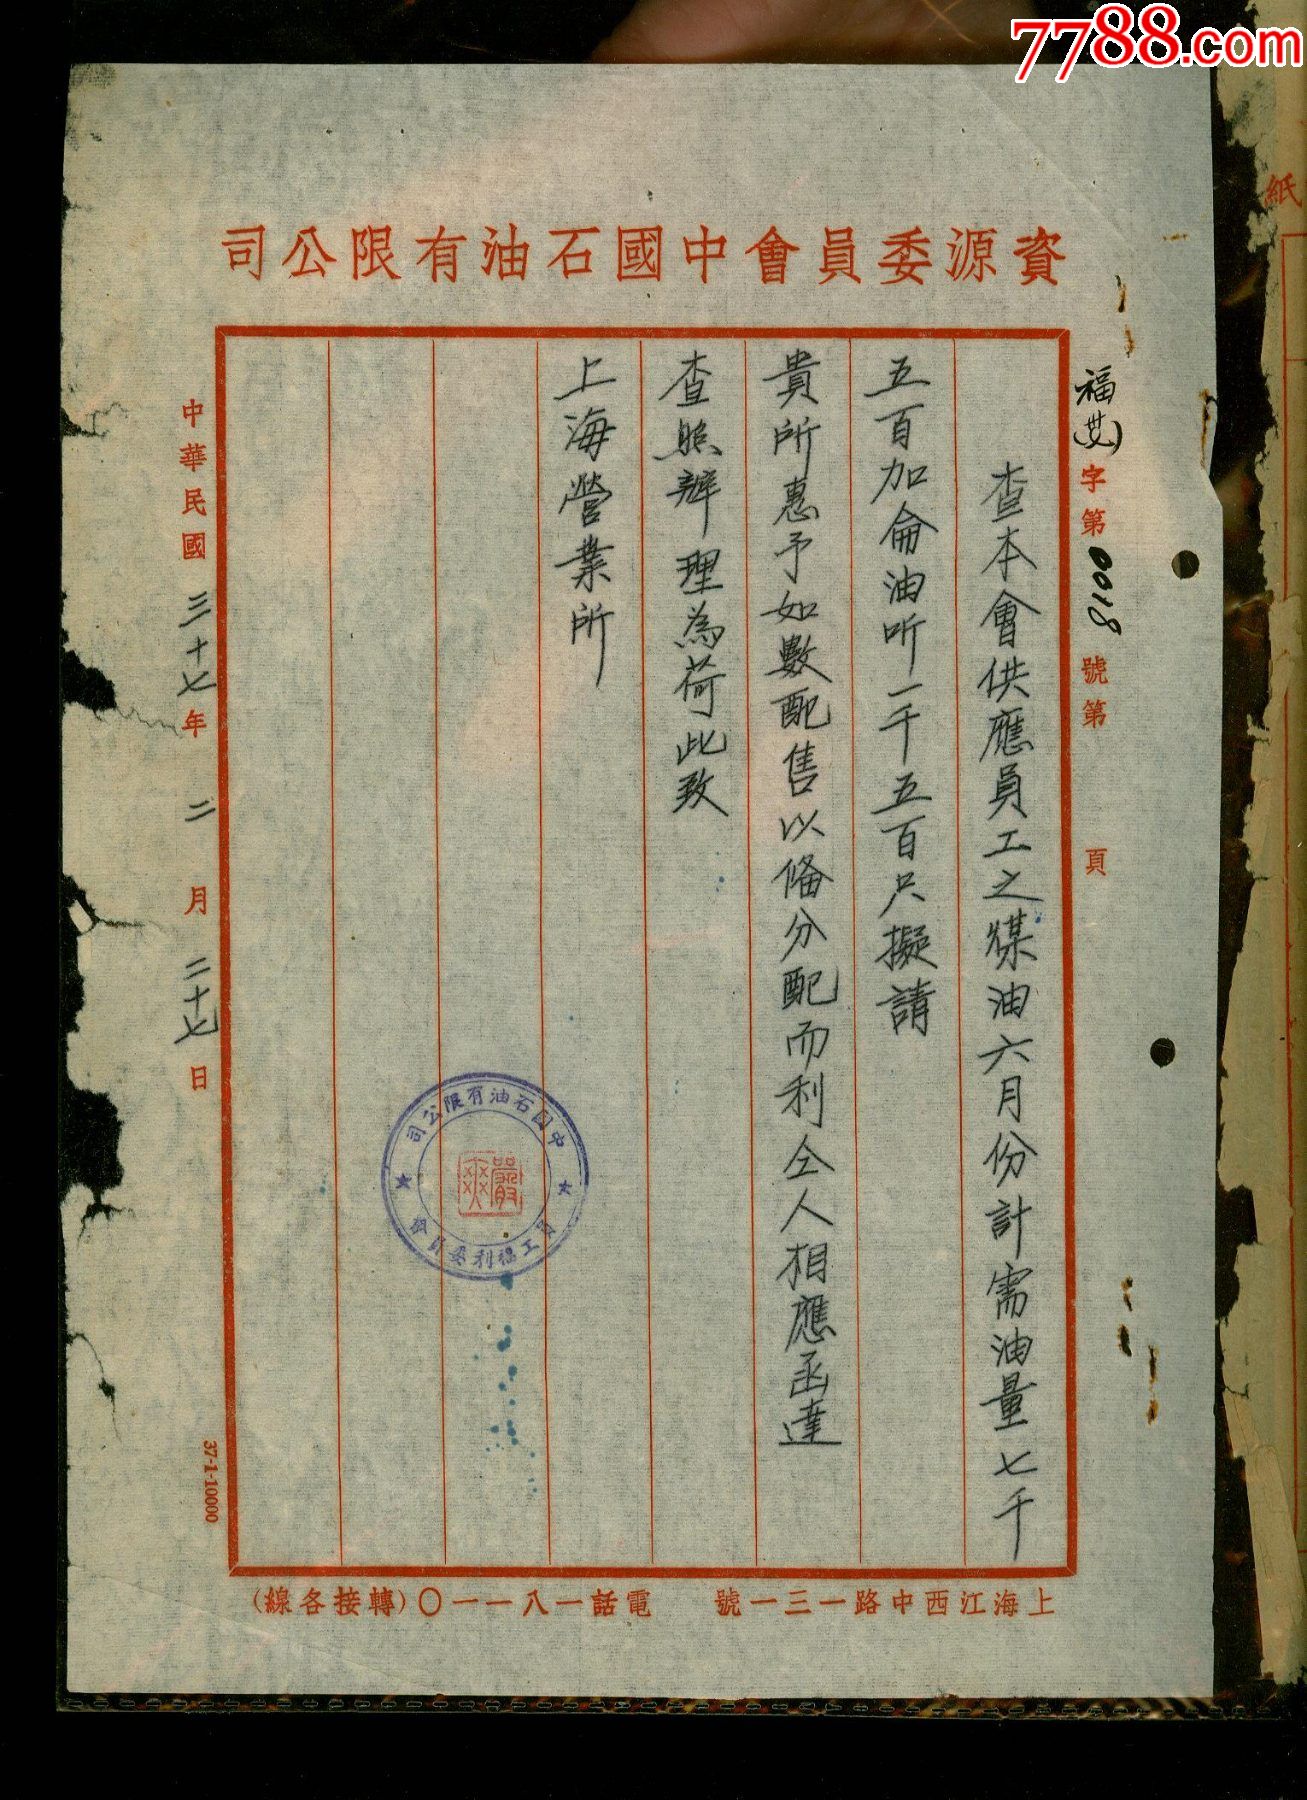 7788.com
紙
資源委員會中國石油有限公司
福(艾)字第0018號第 頁
查本會供應員工之煤油六月份計需油量七千
五百加侖油听一千五百只擬請
貴所惠予如數配售以俻分配而利仝人相應函達
查照辦理為荷此致
上海營業所
中國石油有限公司
員工福利委員會
嚴爽
中華民國三十七年二月二十七日
37-1-10000
上海江西中路一三一號 電話一八一一〇(轉接各線)